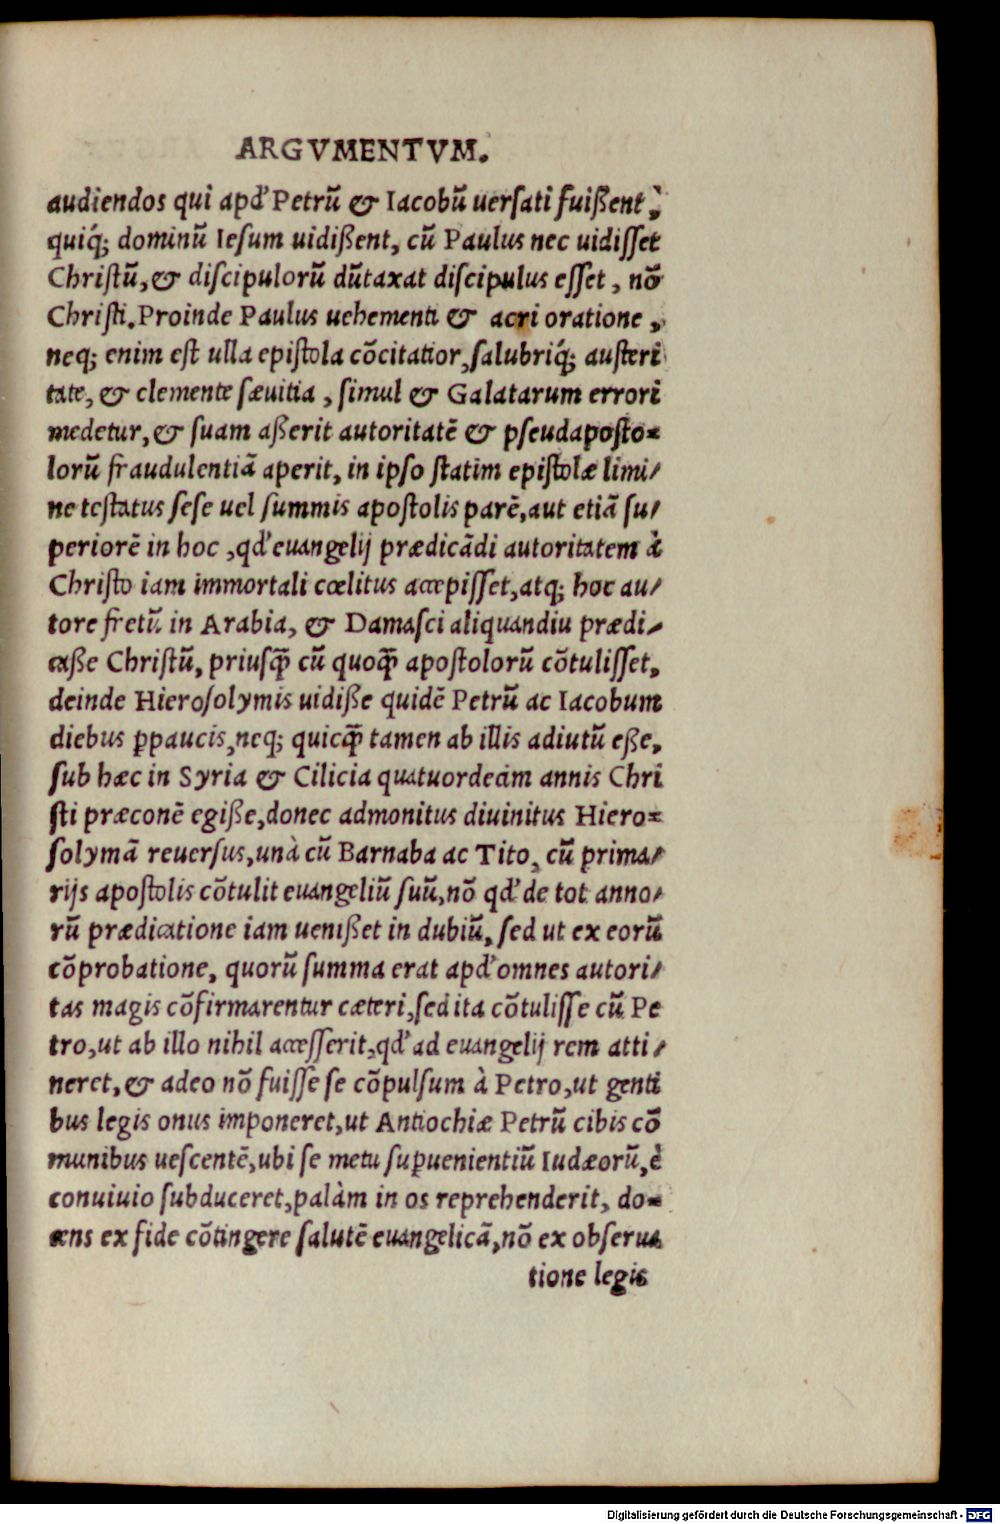 ARGVMENTVM.
audiendos qui apd' Petrū & Iacobū uerſati fuißent,
quiq́; dominū Ieſum uidißent, cū Paulus nec uidiſſet
Chriſtū, & diſcipulorū dūtaxat diſcipulus eſſet, nō
Chriſti. Proinde Paulus uehementi & acri oratione,
neq; enim eſt ulla epiſtola cōcitatior, ſalubriq́; auſteri
tate, & clemente ſæuitia, ſimul & Galatarum errori
medetur, & ſuam aßerit autoritatē & pſeudapoſto=
lorū fraudulentiā aperit, in ipſo ſtatim epiſtolæ limi/
ne teſtatus ſeſe uel ſummis apoſtolis parē, aut etiā ſu/
periorē in hoc, qd' euangelij prædicādi autoritatem à
Chriſto iam immortali cœlitus accepiſſet, atq; hoc au/
tore fretū in Arabia, & Damaſci aliquandiu prædi/
caße Chriſtū, priuſq̄ cū quoq̄ apoſtolorū cōtuliſſet,
deinde Hieroſolymis uidiße quidē Petrū ac Iacobum
diebus ꝑpaucis, neq; quicq̄ tamen ab illis adiutū eße,
ſub hæc in Syria & Cilicia quatuordecim annis Chri
ſti præconē egiße, donec admonitus diuinitus Hiero=
ſolymā reuerſus, unà cū Barnaba ac Tito, cū prima/
rijs apoſtolis cōtulit euangeliū ſuū, nō qd' de tot anno/
rū prædicatione iam uenißet in dubiū, ſed ut ex eorū
cōprobatione, quorū ſumma erat apd' omnes autori/
tas magis cōfirmarentur cæteri, ſed ita cōtuliſſe cū Pe
tro, ut ab illo nihil acceſſerit, qd' ad euangelij rem atti/
neret, & adeo nō fuiſſe ſe cōpulſum à Petro, ut genti
bus legis onus imponeret, ut Antiochiæ Petrū cibis cō
munibus ueſcentē, ubi ſe metu ſuꝑuenientiū Iudæorū, è
conuiuio ſubduceret, palàm in os reprehenderit, do=
cens ex fide cōtingere ſalutē euangelicā, nō ex obſerua
tione legis
Digitalisierung gefördert durch die Deutsche Forschungsgemeinschaft - DFG